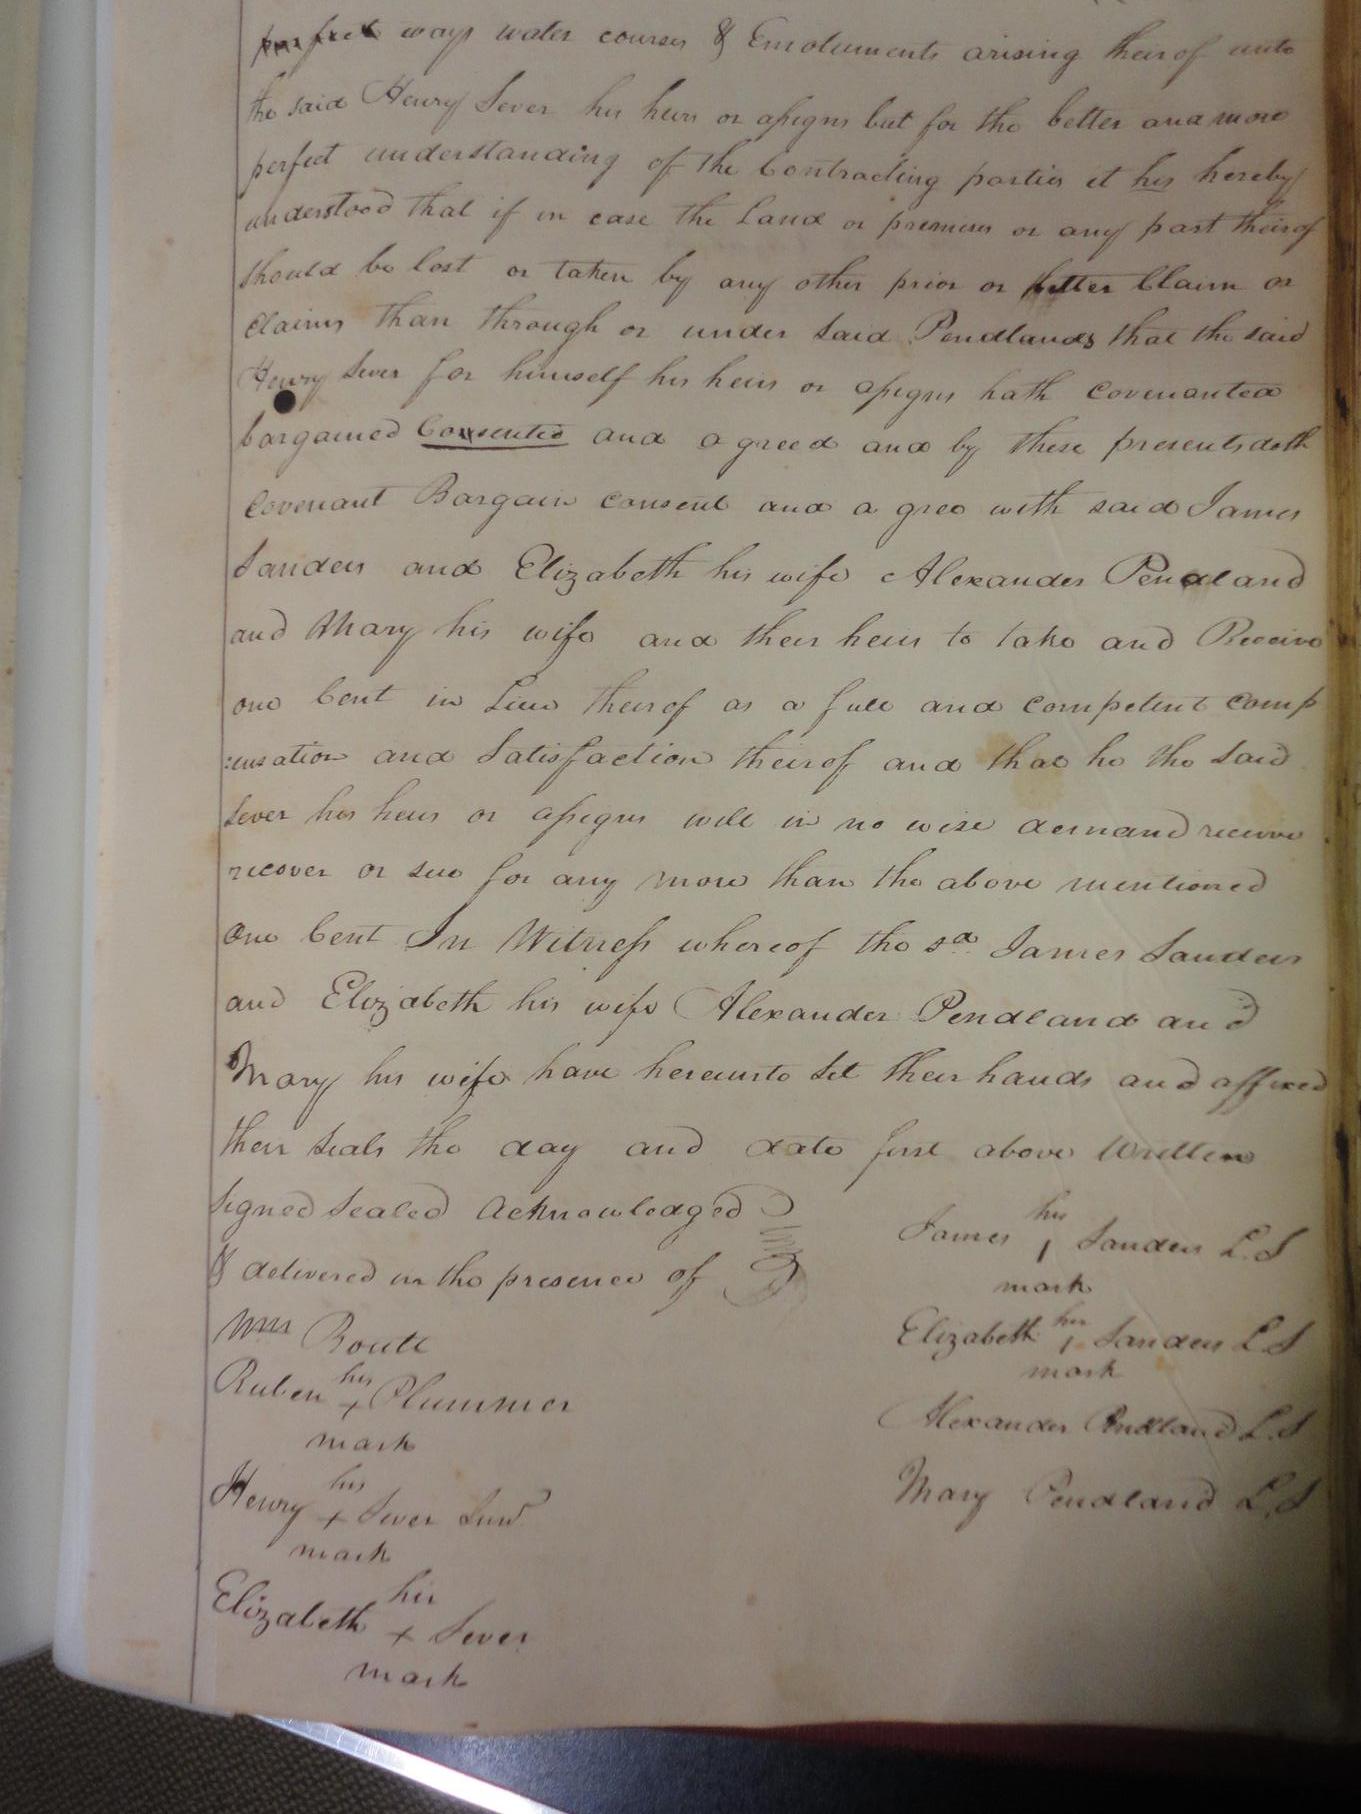 perfect ways water courses & Emoluments arising theirof unto
the said Henry Sever his heirs or assigns but for the better and more
perfect understanding of the Contracting parties it his hereby
understood that if in case the Land or premises or any part theirof
should be lost or taken by any other prior or better Claim or
Claims than through or under said Pendlands that the said
Henry Sever for himself his heirs or assigns hath covenanted
bargained Consented and agreed and by these presents doth
Covenant Bargain consent and a gree with said James
Sanders and Elizabeth his wife Alexander Pendland
and Mary his wife and their heirs to take and Receive
one Cent in Lieu theirof as a full and competent comp
:ensation and Satisfaction theirof and that he the said
Sever his heirs or assigns will in no wise demand receive
recover or sue for any more than the above mentioned
One Cent In Witness whereof the sd. James Sanders
and Elizabeth his wife Alexander Pendland and
Mary his wife have hereunto set their hands and affixed
their seals the day and date first above Written
Signed Sealed Acknowledged
& delivered in the presence of
Wm Route
Ruben his + Plummer
mark
Henry his + Sever Senr
mark
Elizabeth his + Sever
mark
James his | Sanders L.S
mark
Elizabeth her | Sanders L.S
mark
Alexander Pendland L.S
Mary Pendland L.S